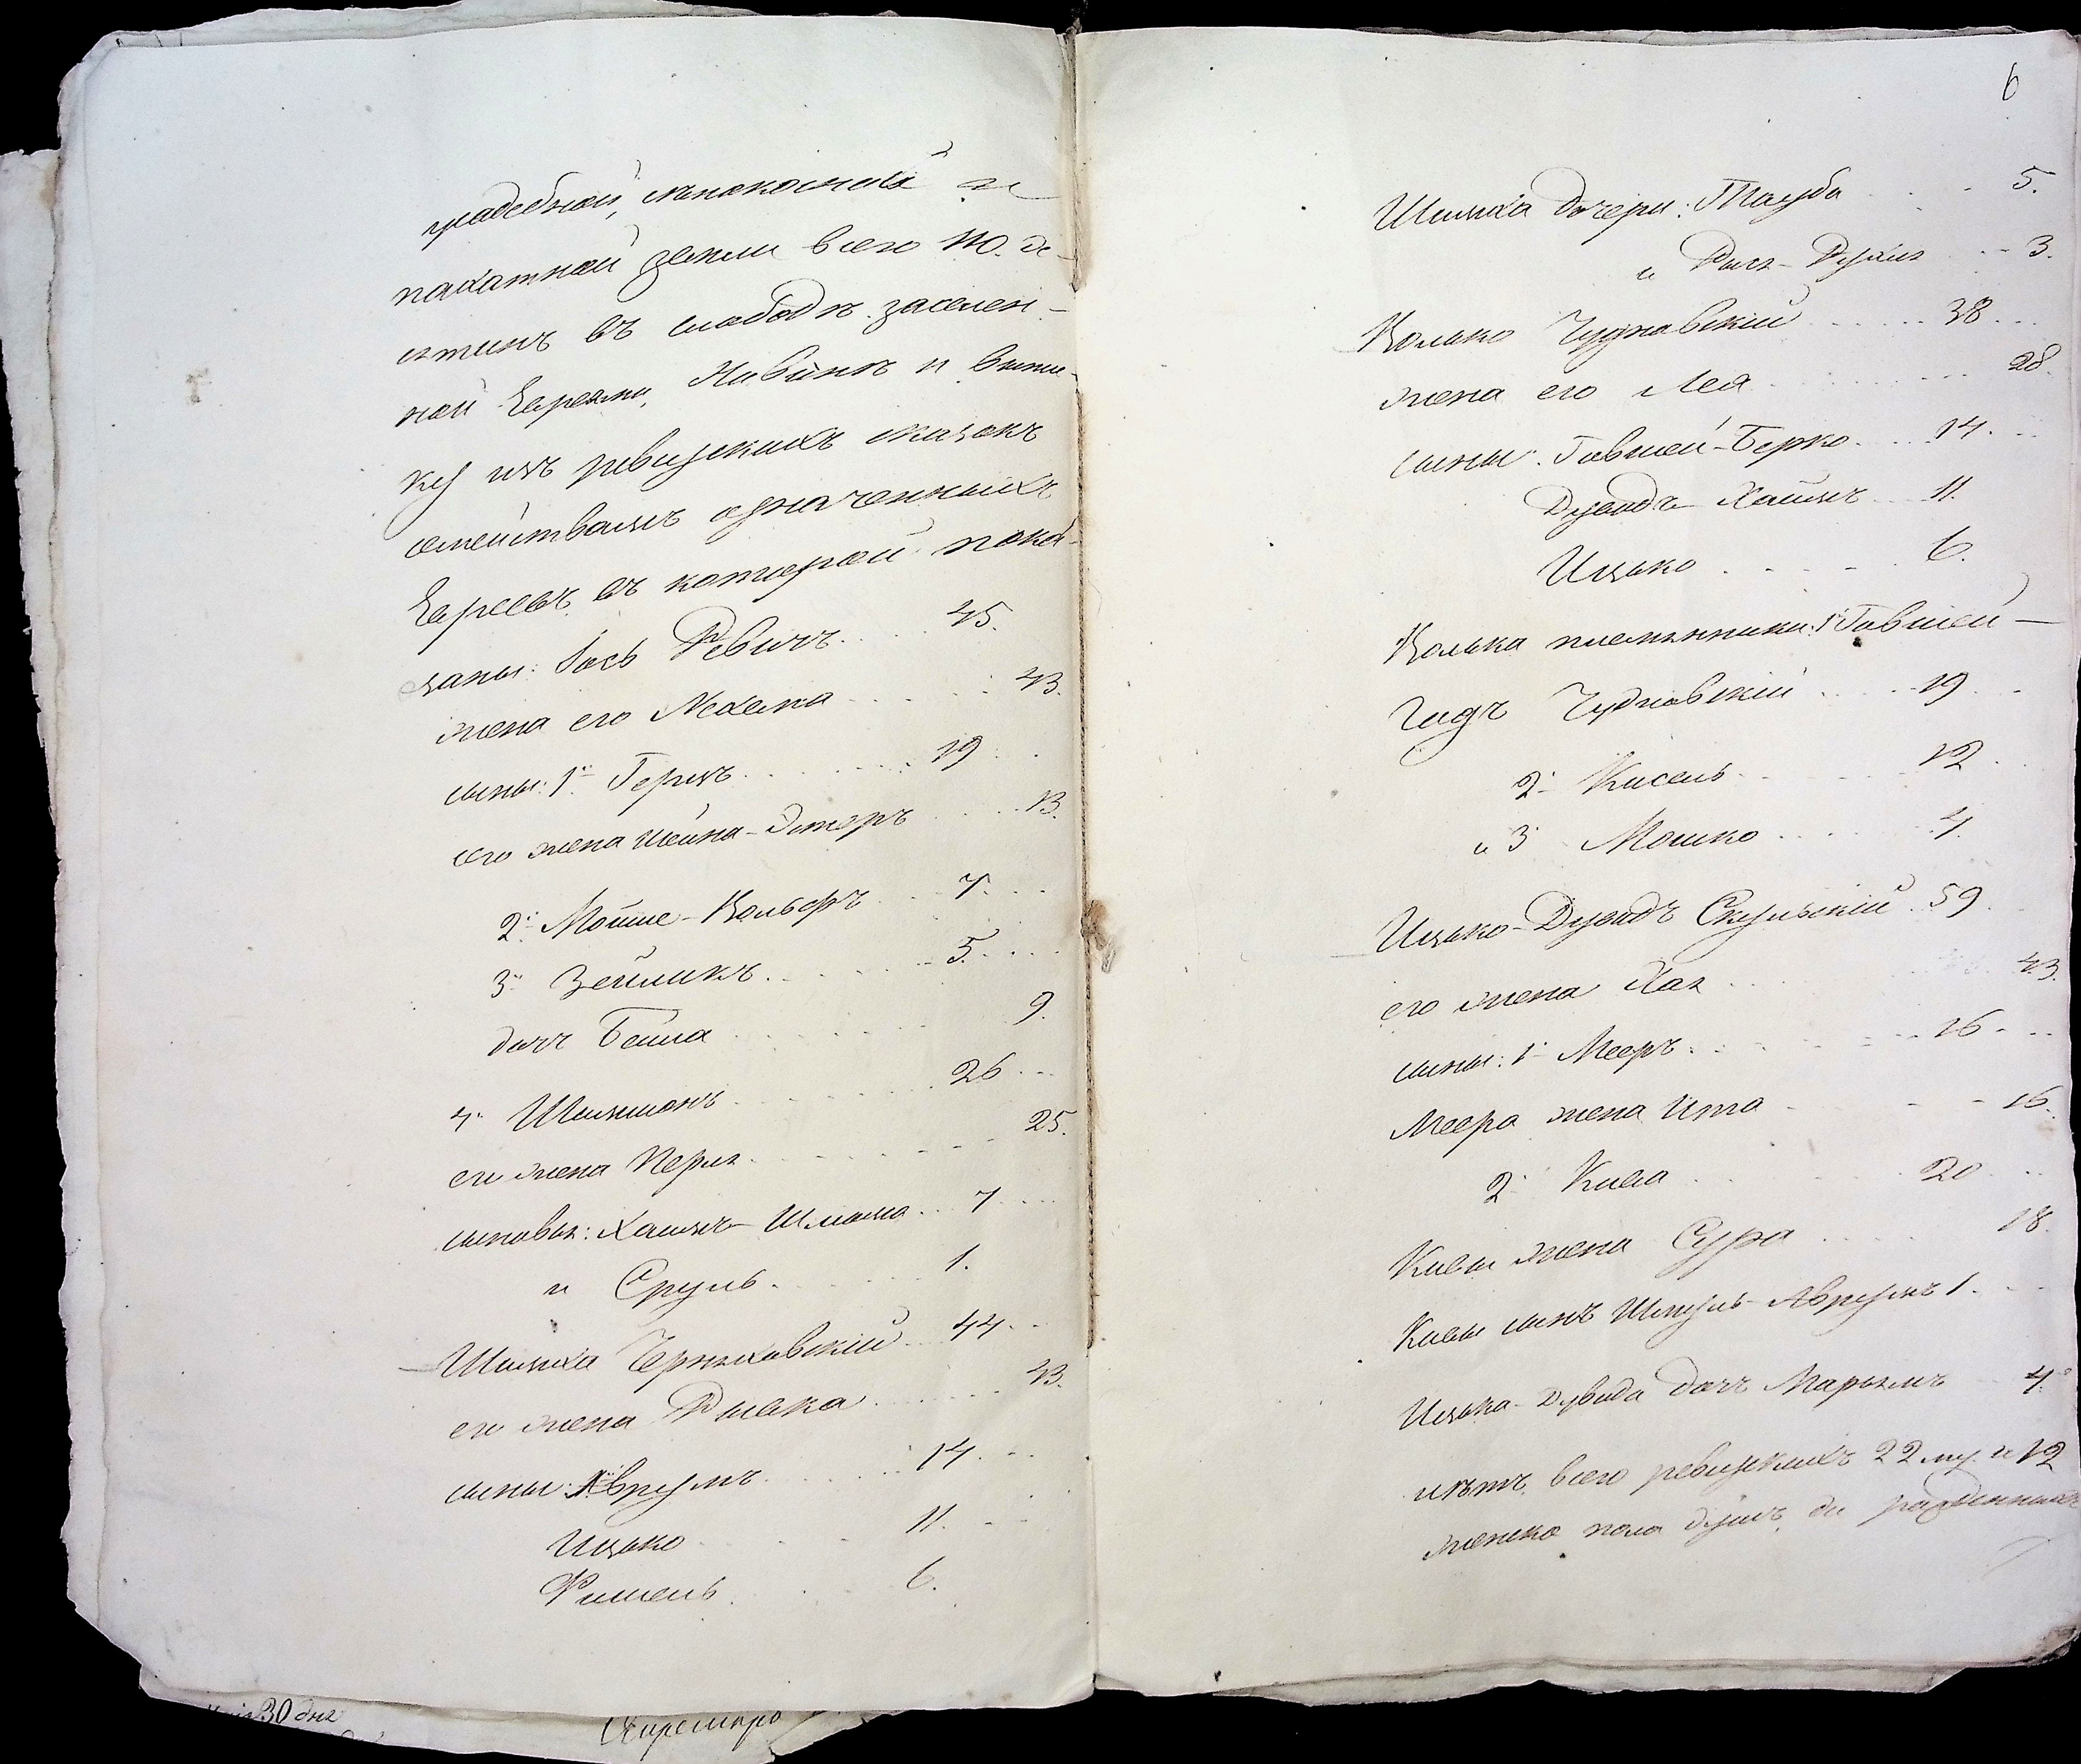 усадебной, сѣнокосной и
пахатной земли всего 110. де-
сятинъ въ слободѣ заселен-
ной Евреями, Нивинѣ и выпи-
ску изъ ревизскихъ сказокъ
семействамъ означенныхъ
Евреевъ въ которой пока-
заны: Іось Ревичъ . . . 45.
жена его Нехама . . . 43.
сыны: 1й Герцъ . . . 19
его жена Шейна-Эстеръ . . . 13.
2й Мойше-Вольфъ . . 7 . .
3й Зейликъ . . . 5. . .
дочь Бейла . . . 9.
4й Шимшонъ . . . 26 . .
его жена Перля . . . 25.
сыновья: Хаимъ-Шлiома . . 7 . .
и Сруль . . . 1.
Шимха Черняховскій . . 44 . .
его жена Рывка . . . 43.
сыны: Аврумъ . . . 14 . .
Ицько . . . 11. . .
Фишель . . . 6.
6
Шимха дочери: Тауба . . . 5.
и Рыся-Рухля . . 3.
Волько Чудновскій . . . 38 . .
жена его Лея . . . 28.
сыны: Говшей-Берко . . 14. . .
Дувидъ-Хаимъ . . 11.
Ицько . . . 6.
Волька племянники: 1й Говшей-
Гидъ Чудновскій . . . 19 . .
2й Кисель . . . 12 . .
и 3й Мошко . . . 4.
Ицько-Дувидъ Скульскій . 59 .
его жена Хая . . . 43.
сыны: 1й Мееръ . . . 16 . .
Меера жена Ита . . . 16.
2й Кива . . . 20 . .
Кивы жена Сура . . . 18.
Кивы сынъ Шмуль-Аврумъ 1. . .
Ицька-Дувида дочь Марьямъ . . 4.
лѣтъ, всего ревизскихъ 22 му. и 12
женска пола душъ, да рожденныхъ
30 дня